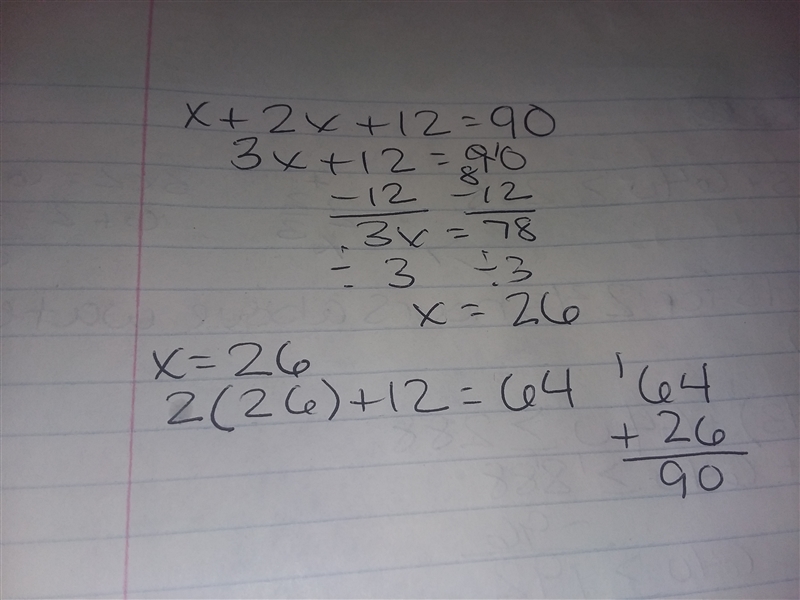 x + 2x + 12 = 90
3x + 12 = 90
8 1
- 12 - 12
3x = 78
÷ 3 ÷ 3
x = 26
x = 26
2(26) + 12 = 64
1
64
+ 26
90